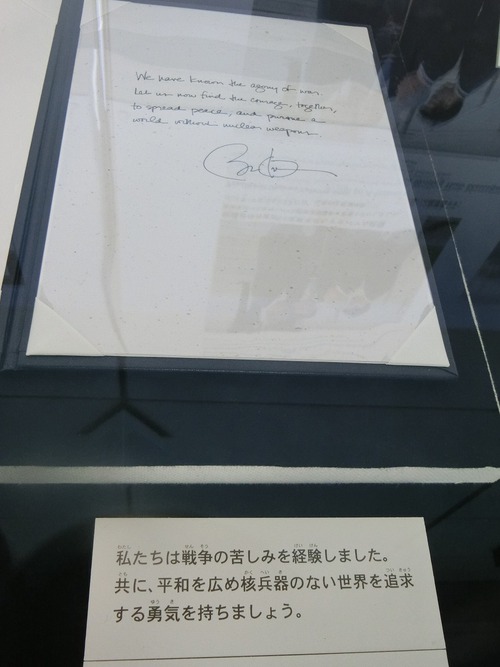 We have known the agony of war.
Let us now find the courage, together,
to spread peace, and pursue a
world without nuclear weapons.
私たちは戦争の苦しみを経験しました。
共に、平和を広め核兵器のない世界を追求
する勇気を持ちましょう。